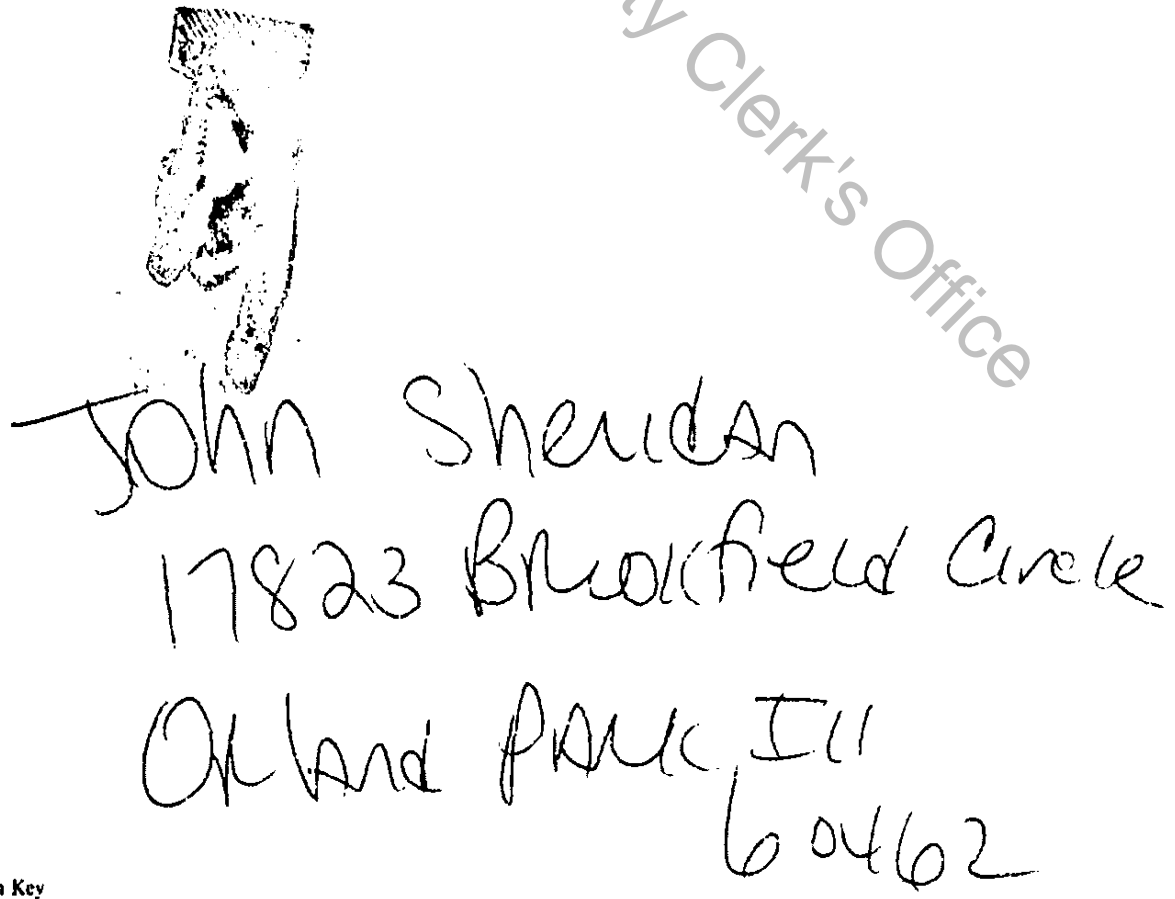 ty Clerk's Office
John Sheridan
17823 Brookfield Circle
Orland Park Ill
60462
Key